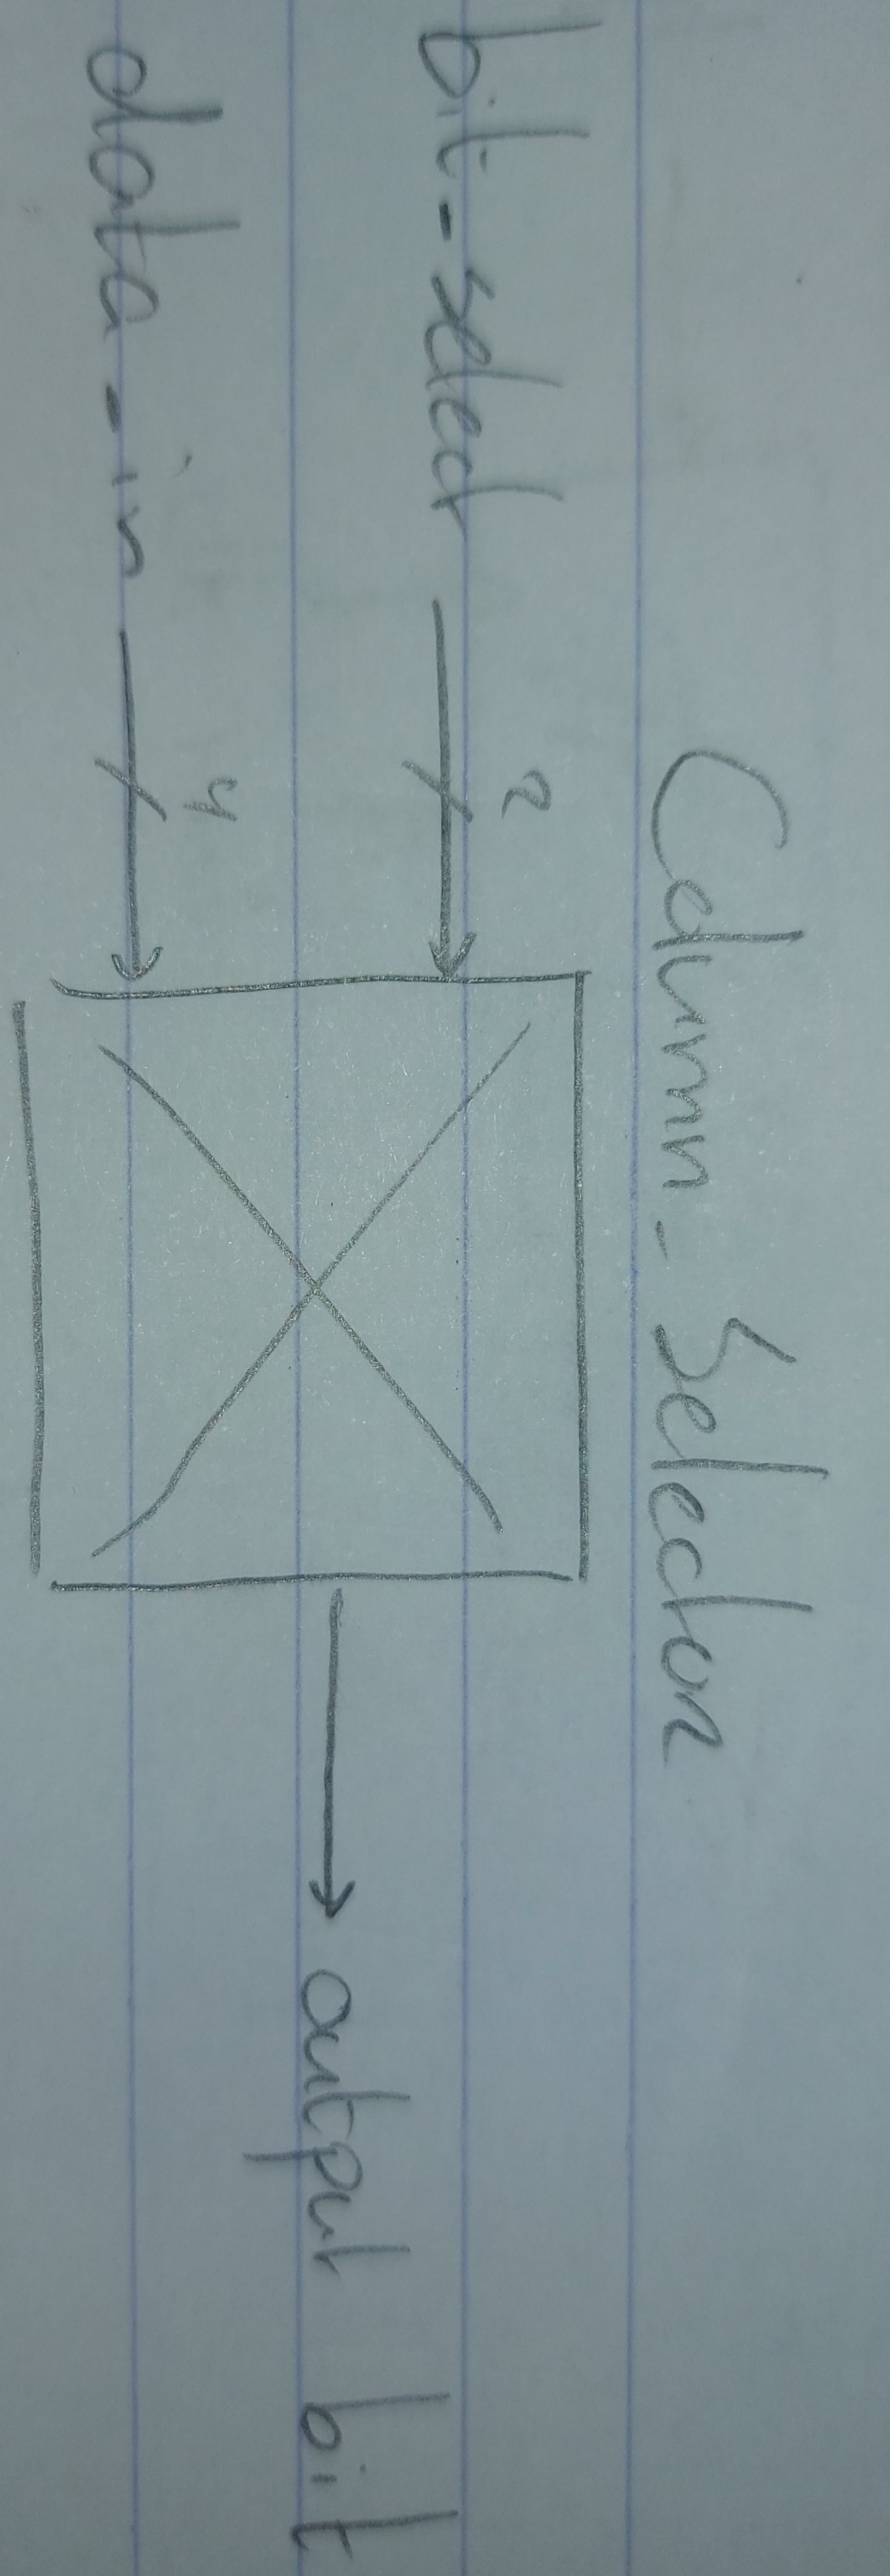 Column_Selector
bit_select
2
data_in
4
output bit